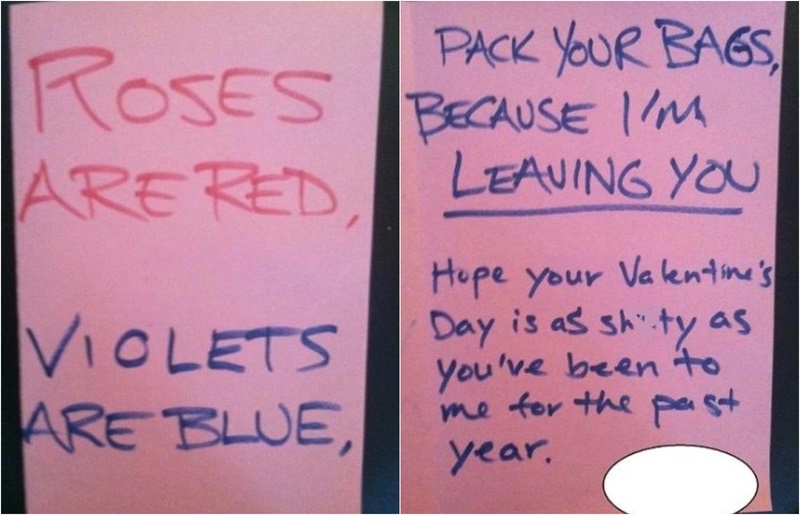 ROSES
ARE RED,
VIOLETS
ARE BLUE,
PACK YOUR BAGS,
BECAUSE I'M
LEAVING YOU
Hope your Valentine's
Day is as sh..ty as
you've been to
me for the past
year.